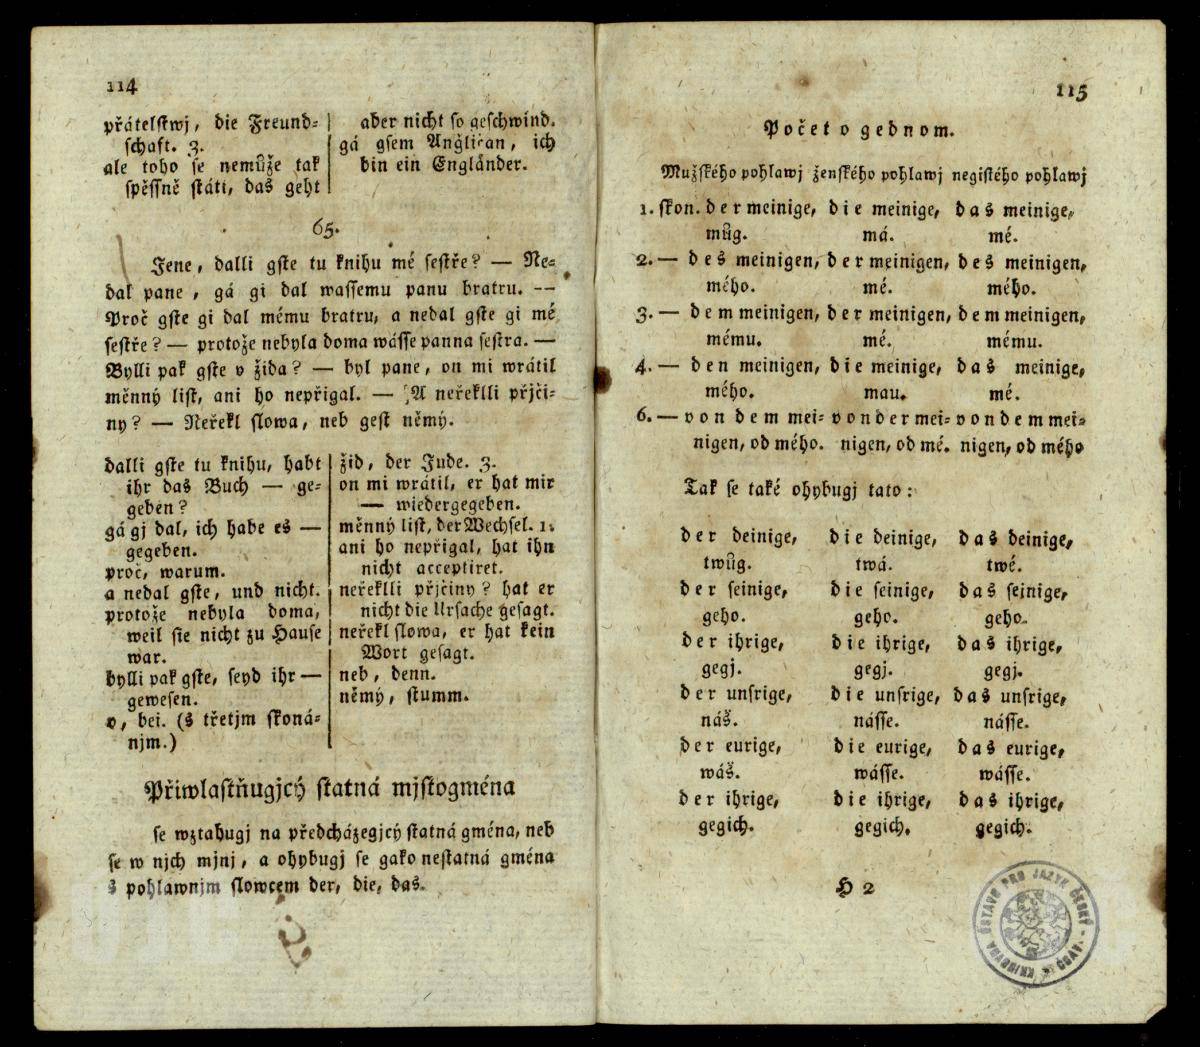 114
přátelstwj, die Freund-
schaft. 3.
ale toho se nemůže tak
spěssně státi, das geht
aber nicht so geschwind.
gá gsem Angličan, ich
bin ein Engländer.
65.
Jene, dalli gste tu knihu mé sestře? — Ne-
dal pane, gá gi dal wassemu panu bratru. —
Proč gste gi dal mému bratru, a nedal gste gi mé
sestře? — protože nebyla doma wásse panna sestra. —
Bylli pak gste v žida? — byl pane, on mi wrátil
měnný list, ani ho nepřigal. — A neřeklli přjči-
ny? — Neřekl slowa, neb gest němý.
dalli gste tu knihu, habt
ihr das Buch — ge-
geben?
gá gj dal, ich habe es —
gegeben.
proč, warum.
a nedal gste, und nicht.
protože nebyla doma,
weil sie nicht zu Hause
war.
bylli pak gste, seyd ihr —
gewesen.
v, bei. (s třetjm skoná-
njm.)
žid, der Jude. 3.
on mi wrátil, er hat mir
— wiedergegeben.
měnný list, der Wechsel. 1.
ani ho nepřigal, hat ihn
nicht acceptiret.
neřeklli přjčiny? hat er
nicht die Ursache gesagt.
neřekl slowa, er hat kein
Wort gesagt.
neb, denn.
němý, stumm.
Přiwlastňugjcý statná mjstogména
se wztahugj na předcházegjcý statná gména, neb
se w njch mjnj, a ohybugj se gako nestatná gména
s pohlawnjm slowcem der, die, das.
115
Počet o gednom.
Mužského pohlawj ženského pohlawj negistého pohlawj
1. skon. der meinige, die meinige, das meinige,
můg. má. mé.
2. — des meinigen, der meinigen, des meinigen,
mého. mé. mého.
3. — dem meinigen, der meinigen, dem meinigen,
mému. mé. mému.
4. — den meinigen, die meinige, das meinige,
mého. mau. mé.
6. — von dem mei- von der mei- von dem mei-
nigen, od mého. nigen, od mé. nigen, od mého
Tak se také ohybugj tato:
der deinige, die deinige, das deinige,
twůg. twá. twé.
der seinige, die seinige, das seinige,
geho. geho. geho.
der ihrige, die ihrige, das ihrige,
gegj. gegj. gegj.
der unsrige, die unsrige, das unsrige,
náš. násse. násse.
der eurige, die eurige, das eurige,
wáš. wásse. wásse.
der ihrige, die ihrige, das ihrige,
gegich. gegich. gegich.
H 2
KNIHOVNA ÚSTAVU PRO JAZYK ČESKÝ - ČSAV